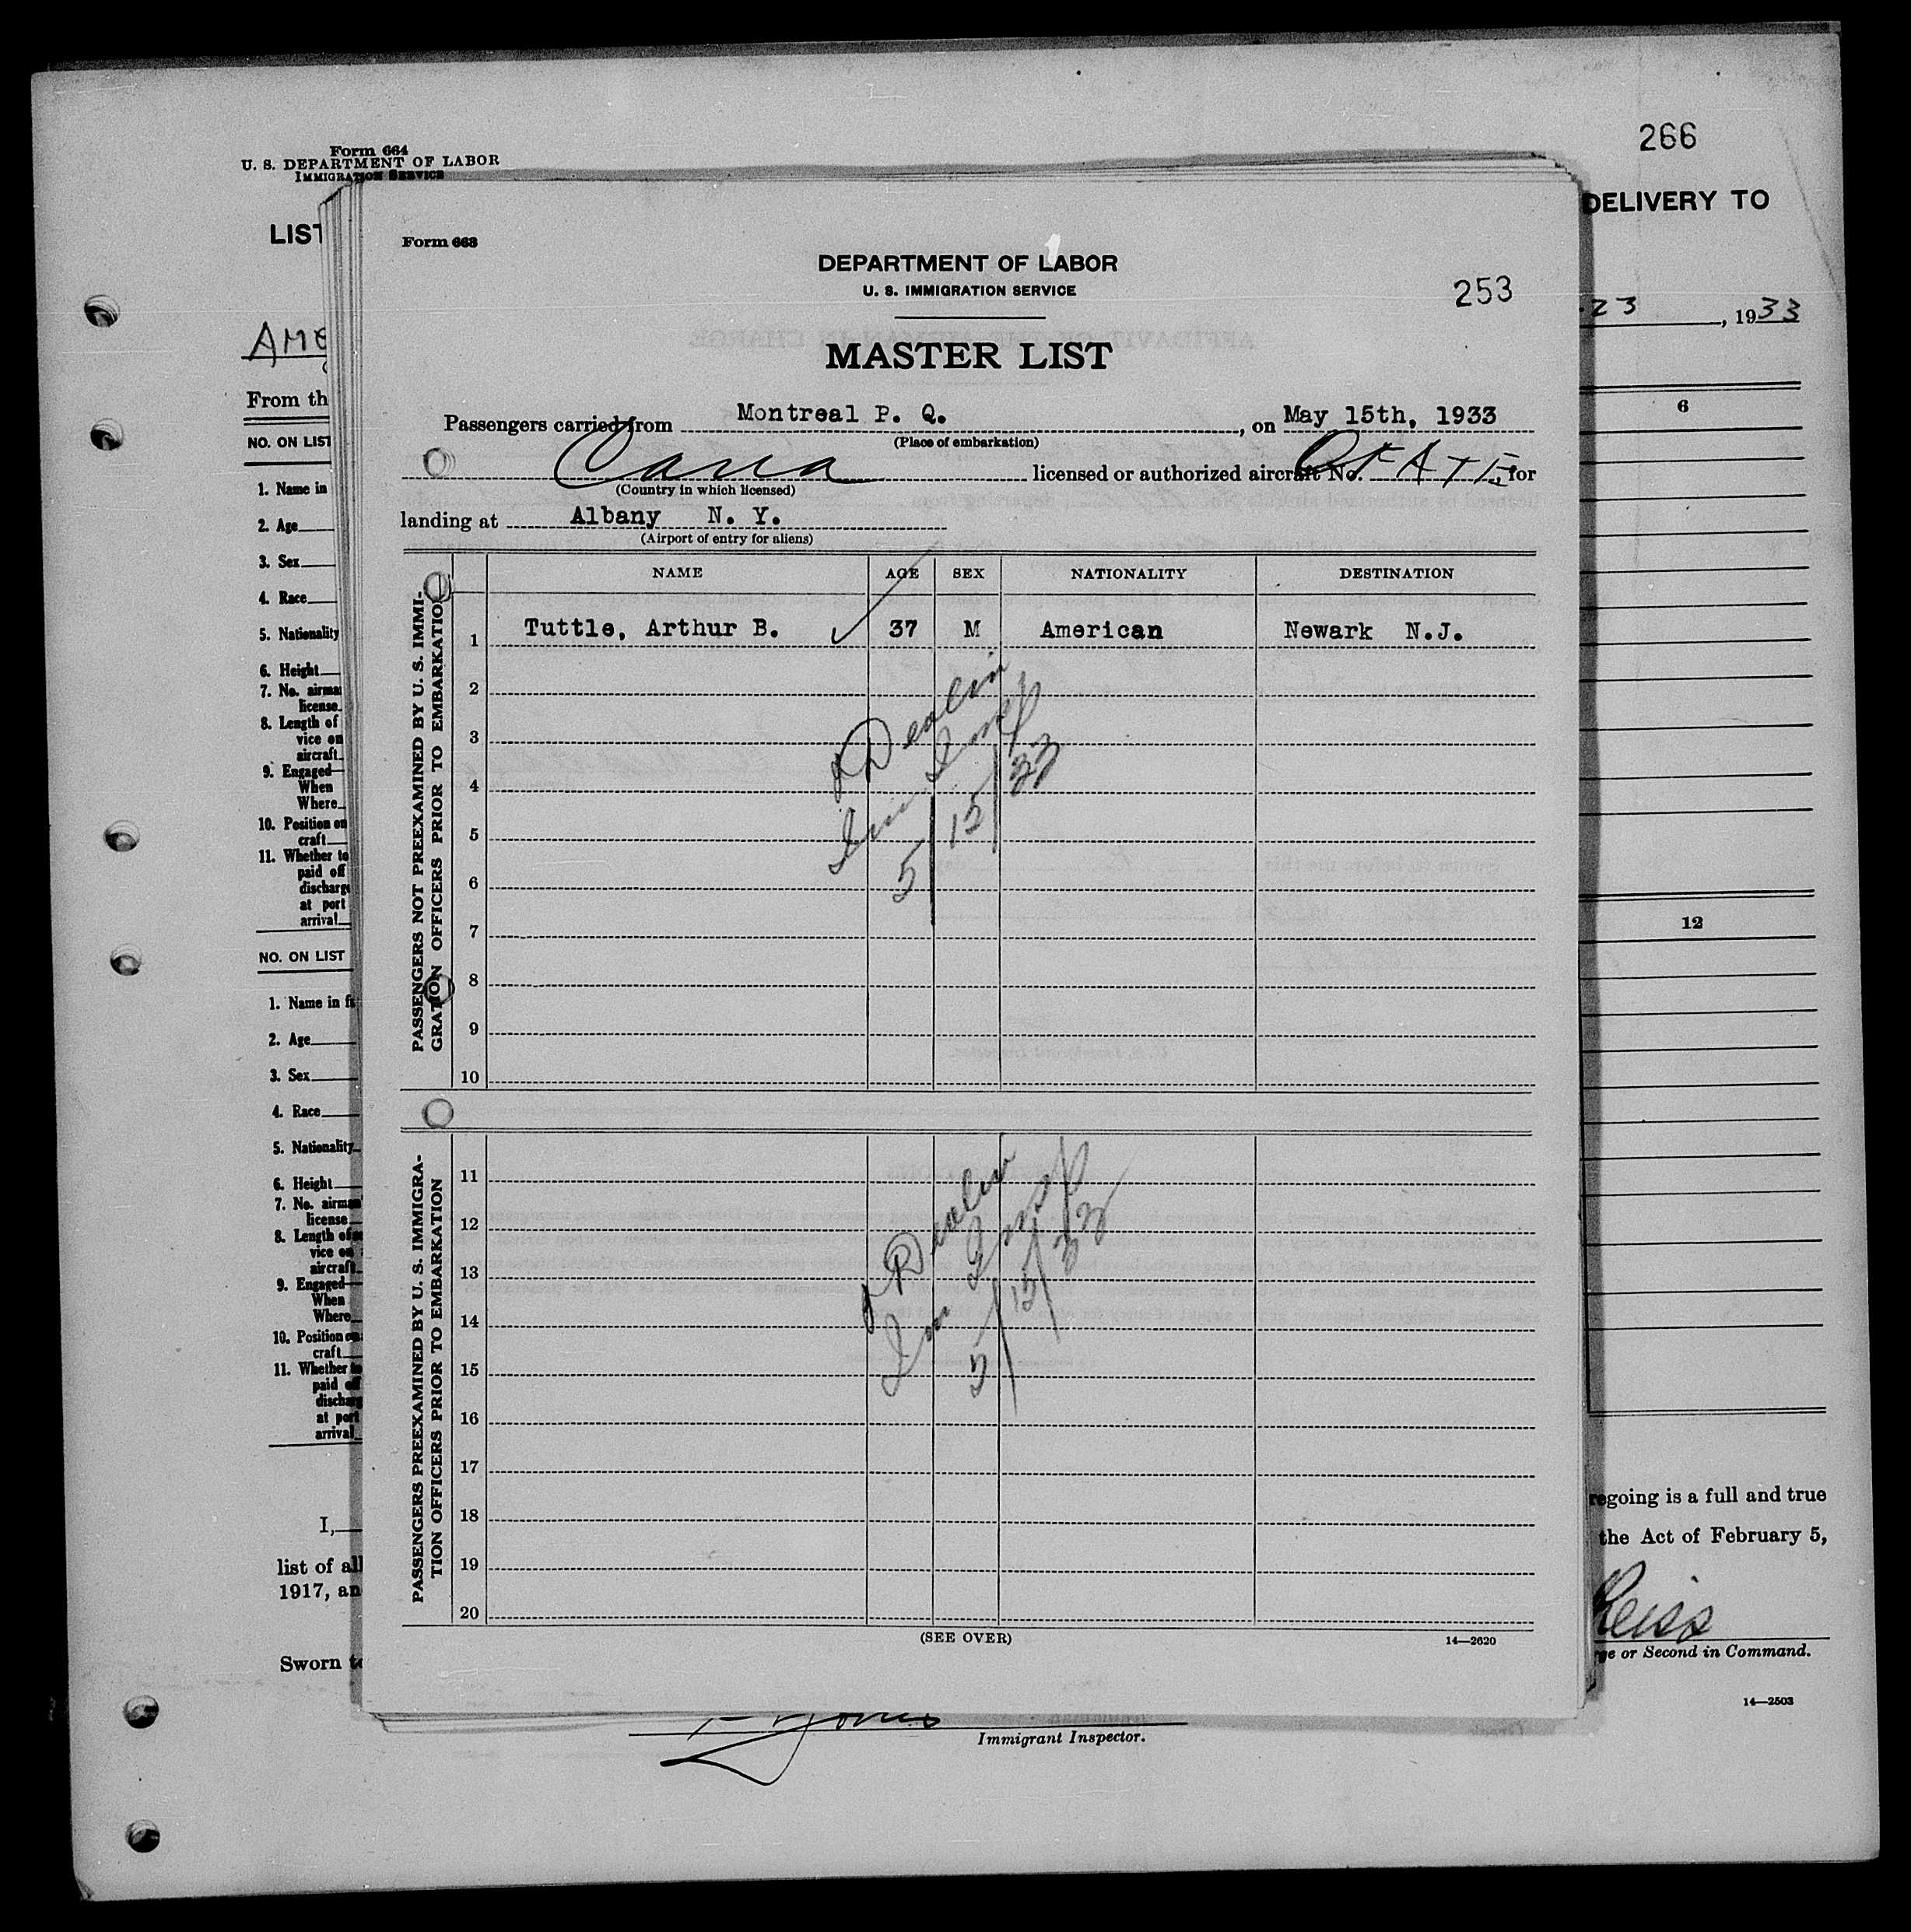 266
Form 664
U. S. DEPARTMENT OF LABOR
IMMIGRATION SERVICE
LIST
DELIVERY TO
23, 1933
AME
From th
NO. ON LIST
1. Name in
2. Age
3. Sex
4. Race
5. Nationality
6. Height
7. No. airma
license
8. Length of
vice on
aircraft
9. Engaged
When
Where
10. Position on
craft
11. Whether to
paid off
discharge
at port
arrival
NO. ON LIST
1. Name in f
2. Age
3. Sex
4. Race
5. Nationality
6. Height
7. No. airman
license
8. Length of
vice on
aircraft
9. Engaged
When
Where
10. Position on
craft
11. Whether to
paid off
discharg
at port
arrival
I,
list of all
1917, an
Sworn to
6
12
regoing is a full and true
the Act of February 5,
Reiss
ge or Second in Command.
14—2503
Immigrant Inspector.
Form 663
DEPARTMENT OF LABOR
U. S. IMMIGRATION SERVICE
253
MASTER LIST
Passengers carried from Montreal P. Q., on May 15th, 1933
(Place of embarkation)
Cana licensed or authorized aircraft No. CF ATF, for
(Country in which licensed)
landing at Albany N. Y.
(Airport of entry for aliens)
NAME AGE SEX NATIONALITY DESTINATION
PASSENGERS NOT PREEXAMINED BY U. S. IMMI-
GRATION OFFICERS PRIOR TO EMBARKATION
1 Tuttle, Arthur B. 37 M American Newark N.J.
2
3
4
5
6
7
8
9
10
5/15/33
PASSENGERS PREEXAMINED BY U. S. IMMIGRA-
TION OFFICERS PRIOR TO EMBARKATION
11
12
13
14
15
16
17
18
19
20
5/15/33
(SEE OVER)
14—2620